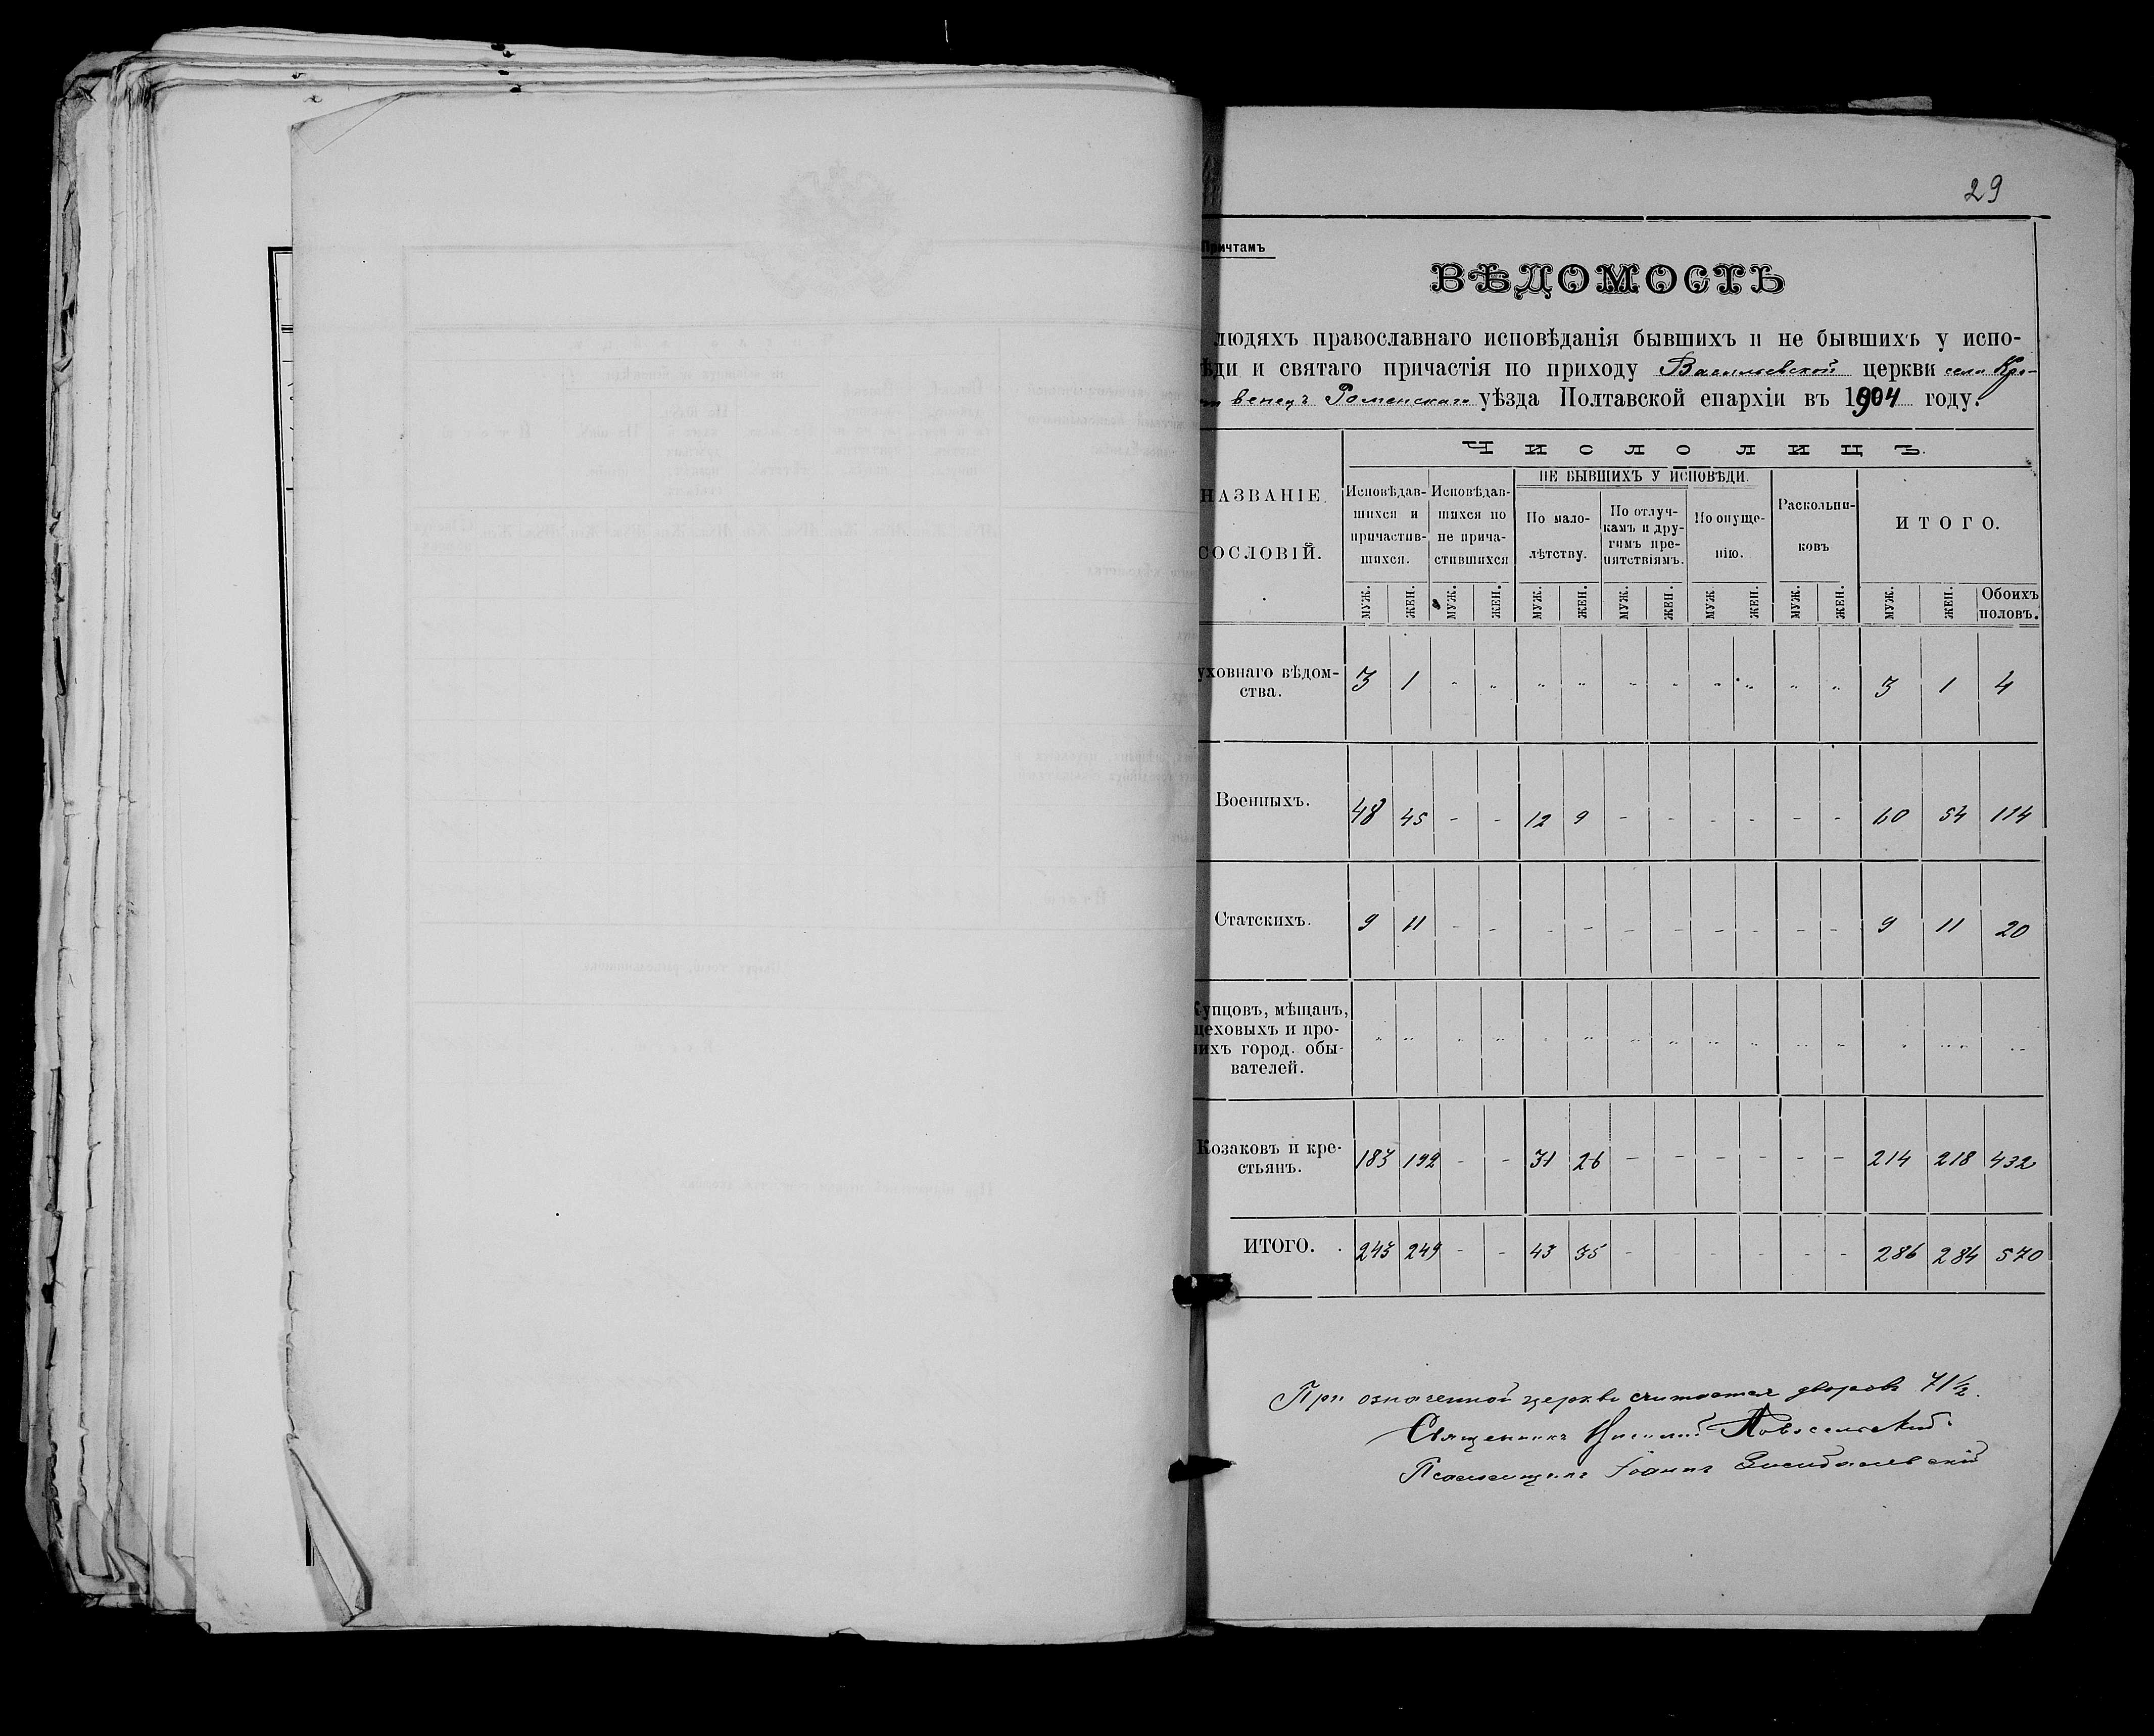 29
Причтамъ
ВѢДОМОСТЬ
людяхъ православнаго исповѣданія бывшихъ и не бывшихъ у испо-
ѣди и святаго причастія по приходу Васильевской церкви села Кро-
венец Роменскаго уѣзда Полтавской епархіи въ 1904 году.
ЧИСЛО ЛИЦЪ.
НАЗВАНІЕ СОСЛОВІЙ. Исповѣдав-шихся и причастив-шихся. Исповѣдав-шихся но не прича-стившихся НЕ БЫВШИХЪ У ИСПОВѢДИ. По мало-лѣтству. По отлуч-камъ и дру-гимъ пре-пятствіямъ. По опуще-нію. Раскольни-ковъ ИТОГО.
муж. жен. муж. жен. муж. жен. муж. жен. муж. жен. муж. жен. муж. жен. Обоихъ половъ.
уховнаго вѣдом-
ства. 3 1 „ „ „ „ „ „ „ „ „ „ 3 1 4
Военныхъ. 48 45 - - 12 9 - - - - - - 60 54 114
Статскихъ. 9 11 - - - - - - - - - - 9 11 20
Купцовъ, мѣщанъ,
цеховыхъ и про-
чихъ город. обы-
вателей. „ „ „ „ „ „ „ „ „ „ „ „ „ „ „
Козаковъ и кре-
стьянъ. 183 192 - - 31 26 - - - - - - 214 218 432
ИТОГО. 243 249 - - 43 35 - - - - - - 286 284 570
При означенной церкви считается дворовъ 71½.
Священникъ Новосельскій
Псаломщикъ Іоаннъ